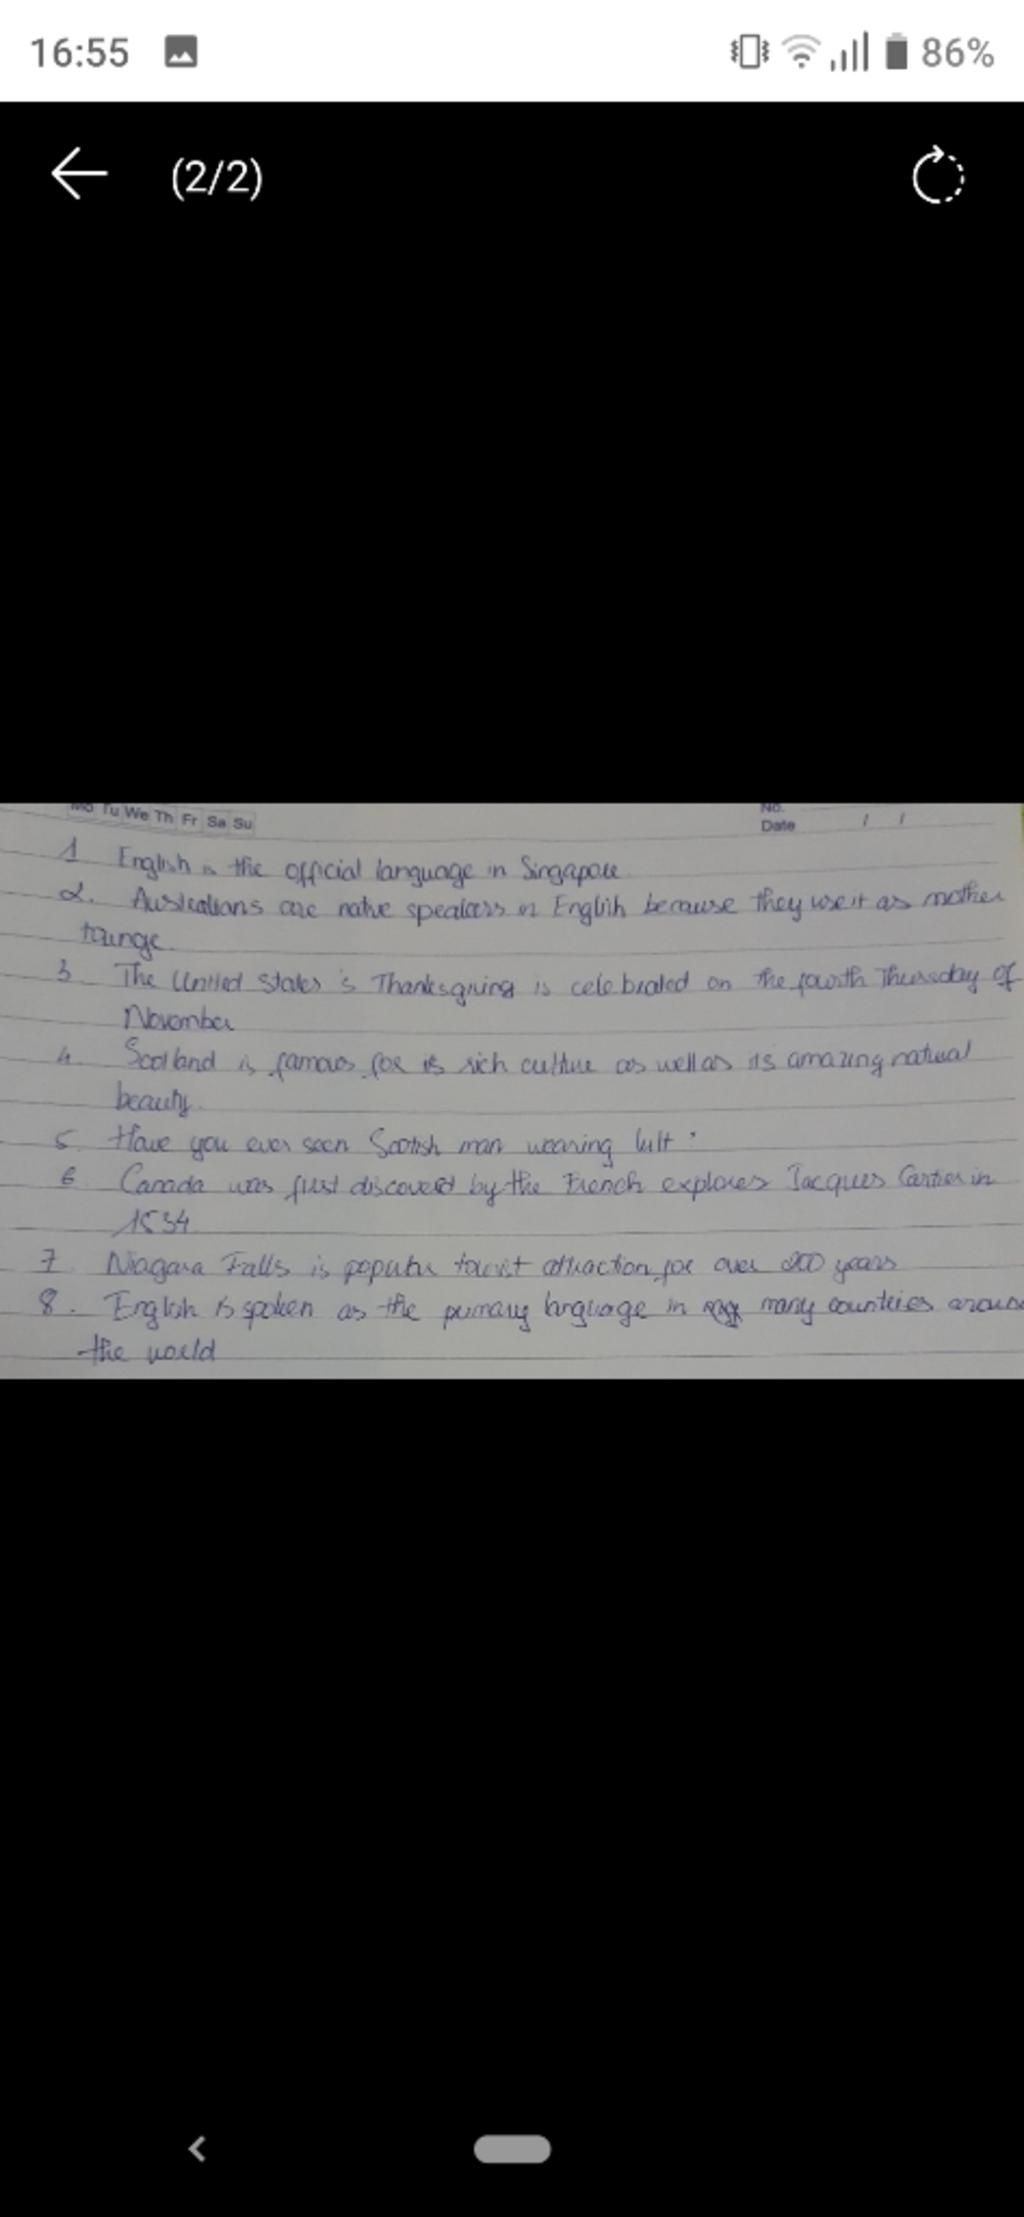 16:55
86%
(2/2)
Mo Tu We Th Fr Sa Su
No.
Date / /
1 English is the official language in Singapore
2. Australians are native speakers in English because they use it as mother
tounge.
3 The United States's Thanksgiving is celebrated on the fourth Thursday of
November
4. Scotland is famous for its rich culture as well as its amazing natural
beauty.
5. Have you ever seen Scotish man wearing kilt?
6 Canada was first discovered by the French explores Jacques Cartier in
1534.
7. Niagara Falls is popular tourist attraction for over 200 years
8. English is spoken as the primary language in many countries
the world